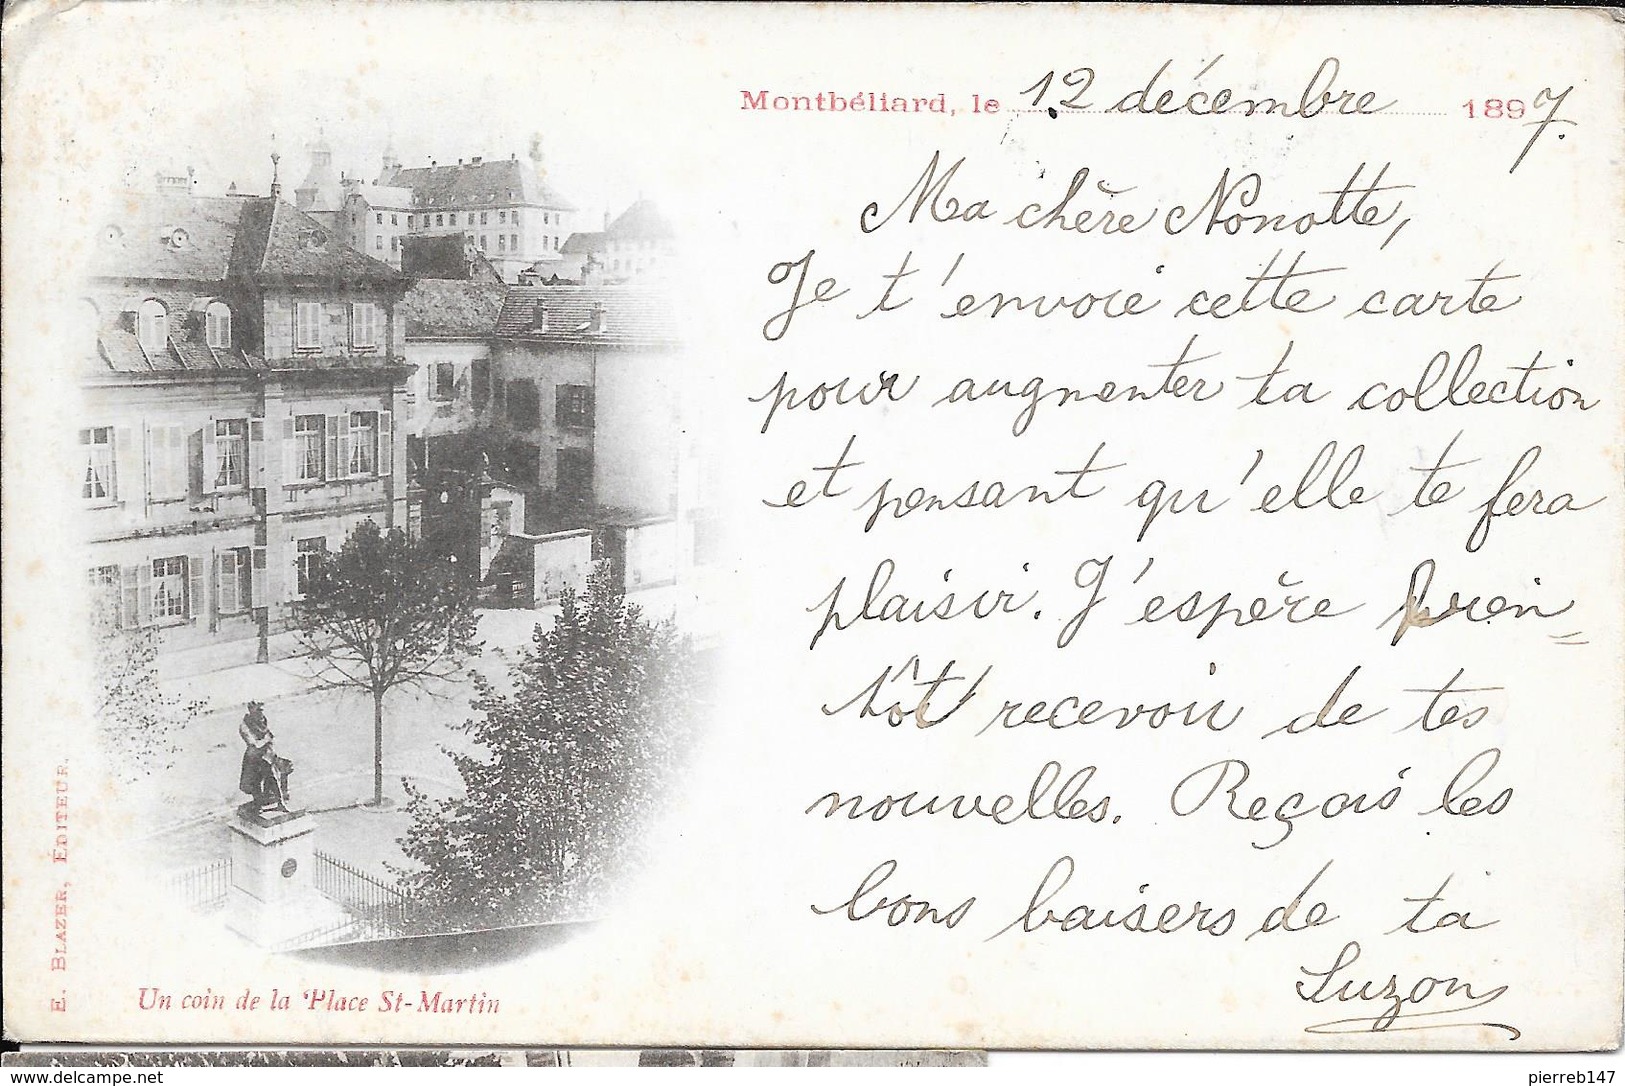 Montbéliard, le 12 décembre 1897.
Ma chère Nonotte,
Je t'envoie cette carte
pour augmenter ta collection
et pensant qu'elle te fera
plaisir. J'espère bien=
tôt recevoir de tes
nouvelles. Reçois les
bons baisers de ta
Suzon
E. BLAZER, EDITEUR.
Un coin de la Place St-Martin
www.delcampe.net
pierreb147